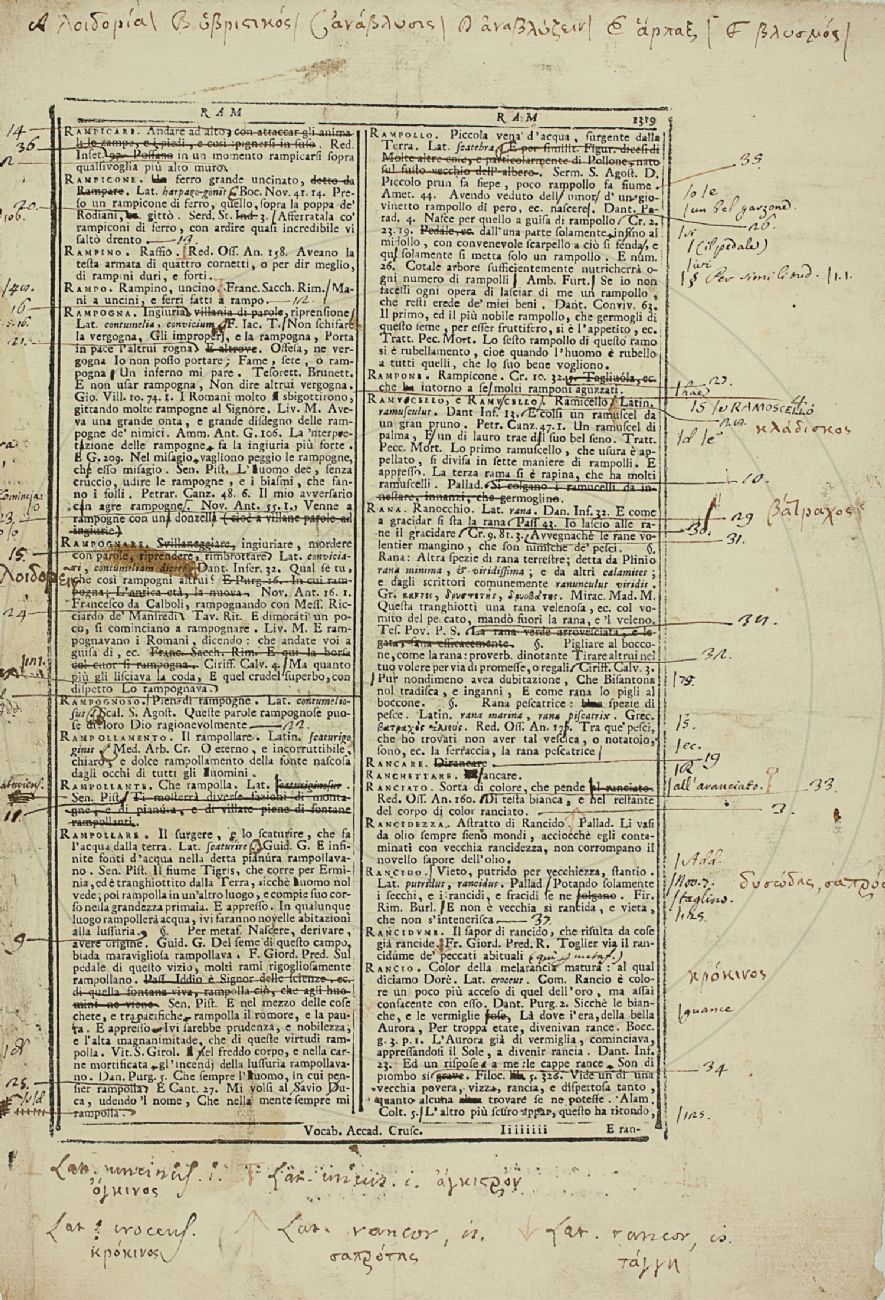 A λοιδορία B ὑβριστικός C ἀνάβλυσις D ἀναβλύζειν E ἅρπαξ F βλυσμός
RAM
RAM 1319
RAMPICARE. Andare ad alto, con attaccar gli anima
li le zampe, e i piedi, e così spignersi in suso. Red.
Inset. 97. Possano in un momento rampicarsi sopra
qualsivoglia più alto muro.
RAMPICONE. Un ferro grande uncinato, detto da
Rampare. Lat. harpago-ginis. Boc. Nov. 41. 14. Pre-
so un rampicone di ferro, quello, sopra la poppa de'
Rodiani, gittò. Serd. St. Ind. 3. Afferratala co'
rampiconi di ferro, con ardire quasi incredibile vi
saltò drento
RAMPINO. Raffio. Red. Off. An. 158. Aveano la
testa armata di quattro cornetti, o per dir meglio,
di rampini duri, e forti.
RAMPO. Rampino, uncino. Franc. Sacch. Rim. Ma-
ni a uncini, e ferri fatti a rampo.
RAMPOGNA. Ingiuria, villania di parole, riprensione
Lat. contumelia, convicium. F. Iac. T. Non schifare
la vergogna, Gli improperj, e la rampogna, Porta
in pace l'altrui rogna. E altrove. Offesa, ne ver-
gogna Io non posso portare; Fame, sete, o ram-
pogna Un inferno mi pare. Tesorett. Brunett.
E non usar rampogna, Non dire altrui vergogna.
Gio. Vill. 10. 74. 1. I Romani molto sbigottirono,
gittando molte rampogne al Signore. Liv. M. Ave-
va una grande onta, e grande disdegno delle ram-
pogne de' nimici. Amm. Ant. G. 106. La 'nterpre-
tazione delle rampogne fa la ingiuria più forte.
E G. 209. Nel misagio, vagliono peggio le rampogne,
che esso misagio. Sen. Pist. L'uomo dee, senza
cruccio, udire le rampogne, e i biasmi, che fan-
no i folli. Petrar. Canz. 48. 6. Il mio avversario
con agre rampogne. Nov. Ant. 55. 1. Venne a
rampogne con una donzella (cioè a villane parole ed
ingiurie)
RAMPOGNARE. Svillaneggiare, ingiuriare, mordere
con parole, riprendere, rimbrottare. Lat. convicia-
ri, contumeliam dicere. Dant. Infer. 32. Qual se' tu,
che così rampogni altrui? E Purg. 16. In cui ram-
pogna; L'antica età, la nuova. Nov. Ant. 16. 1.
Francesco da Calboli, rampognando con Mess. Ric-
ciardo de' Manfredi. Tav. Rit. E dimorati un po-
co, si cominciano a rampognare. Liv. M. E ram-
pognavano i Romani, dicendo: che andate voi a
guisa di, ec. Franc. Sacch. Rim. E qui la borsa
col cuor si rampogna. Ciriff. Calv. 4. Ma quanto
più gli lisciava la coda, E quel crudel superbo, con
dispetto Lo rampognava.
RAMPOGNOSO. Pien di rampogne. Lat. contumelio-
sus. Scal. S. Agost. Queste parole rampognose puo-
se di loro Dio ragionevolmente
RAMPOLLAMENTO. Il rampollare. Latin. scaturigo
ginis. Med. Arb. Cr. O eterno, e incorruttibile,
chiaro, e dolce rampollamento della fonte nascosa
dagli occhi di tutti gli uomini.
RAMPOLLANTE. Che rampolla. Lat. scaturiginosus.
Sen. Pist. Ti mosterrà diverse fazioni di monta-
gne, e di pianura, e di villate piene di fontane
rampollanti.
RAMPOLLARE. Il surgere, e lo scaturire, che fa
l'acqua dalla terra. Lat. scaturire. Guid. G. E infi-
nite fonti d'acqua nella detta pianura rampollava-
no. Sen. Pist. Il fiume Tigris, che corre per Ermi-
nia, ed è tranghiottito dalla Terra, sicchè uomo nol
vede; poi rampolla in un'altro luogo, e compie suo cor-
so nella grandezza primaia. E appresso. In qualunque
luogo rampollerà acqua, ivi faranno novelle abitazioni
alla lussuria. §. Per metaf. Nascere, derivare,
avere origine. Guid. G. Del seme di questo campo,
biada maravigliosa rampollava. F. Giord. Pred. Sul
pedale di questo vizio, molti rami rigogliosamente
rampollano. Pass. Iddio è Signor delle scienze, ec.
di quella fontana viva, rampolla ciò, che agli huo-
mini ne viene. Sen. Pist. E nel mezzo delle cose
chete, e trapacifiche, rampolla il romore, e la pau-
ra. E appresso. Ivi sarebbe prudenza, e nobilezza,
e l'alta magnanimitade, che di queste virtudi ram-
polla. Vit. S. Girol. nel freddo corpo, e nella car-
ne mortificata, gl'incendj della lussuria rampollava-
no. Dan. Purg. 5. Che sempre l'uomo, in cui pen-
sier rampolla. E Cant. 27. Mi volsi al Savio Du-
ca, udendo 'l nome, Che nella mente sempre mi
rampolla.
RAMPOLLO. Piccola vena d'acqua, surgente dalla
Terra. Lat. scatebra. E per similit. Figur. dicesi di
Molte altre cose, e particolarmente di Pollone, nato
sul fusto vecchio dell'albero. Serm. S. Agost. D.
Piccolo prun fa siepe, poco rampollo fa fiume.
Amet. 44. Avendo veduto dell'umor d'un gio-
vinetto rampollo di pero, ec. nascere. Dant. Pa-
rad. 4. Nasce per quello a guisa di rampollo. Cr. 2.
23. 19. Pedale, ec. dall'una parte solamente, infino al
midollo, con convenevole scarpello a ciò si fenda, e
qui solamente si metta solo un rampollo. E num.
26. Cotale arbore sufficientemente nutricherà o-
gni numero di rampolli. Amb. Furt. Se io non
facessi ogni opera di lasciar di me un rampollo,
che resti erede de' miei beni. Dant. Conviv. 63.
Il primo, ed il più nobile rampollo, che germogli di
questo seme, per esser fruttifero, si è l'appetito, ec.
Tratt. Pec. Mort. Lo sesto rampollo di questo ramo
si è rubellamento, cioè quando l'huomo è rubello
a tutti quelli, che lo suo bene vogliono.
RAMPONE. Rampicone. Cr. 10. 32. Tagliuola, ec.
che ha intorno a se molti ramponi aguzzati.
RAMUCELLO, e RAMUSCELLO. Ramicello. Latin.
ramusculus. Dant Inf. 13. E colsi un ramuscel da
un gran pruno. Petr. Canz. 47. 1. Un ramuscel di
palma, E un di lauro trae dal suo bel seno. Tratt.
Pecc. Mort. Lo primo ramuscello, che usura è ap-
pellato, si divisa in sette maniere di rampolli. E
appresso. La terza rama si è rapina, che ha molti
ramuscelli. Pallad. Si colgano i ramucelli da in-
nestare, innanzi, che germoglino.
RANA. Ranocchio. Lat. rana. Dan. Inf. 32. E come
a gracidar si sta la rana. Pass. 43. Io lascio alle ra-
ne il gracidare. Cr. 9. 81. 3. Avvegnachè le rane vo-
lentier mangino, che son nimiche de' pesci. §.
Rana: Altra spezie di rana terrestre; detta da Plinio
rana minima, & viridissima; e da altri calamites;
e dagli scrittori comunemente ranunculus viridis.
Gr. Mirac. Mad. M.
Questa tranghiottì una rana velenosa, ec. col vo-
mito del peccato, mandò fuori la rana, e 'l veleno.
Tes. Pov. P. S. La rana verde arrovesciata, e le-
gata, sana efficacemente. §. Pigliare al bocco-
ne, come la rana: proverb. dinotante Tirare altrui nel
tuo volere per via di promesse, o regali. Ciriff. Calv. 3.
Pur nondimeno avea dubitazione, Che Bisantona
nol tradisca, e inganni, E come rana lo pigli al
boccone. §. Rana pescatrice: Una spezie di
pesce. Latin. rana marina, rana piscatrix. Grec.
βάτραχος ἁλιεύς. Red. Oss. An. 176. Tra que' pesci,
che ho trovati non aver tal vescica, o notatoio,
sono, ec. la ferraccia, la rana pescatrice.
RANCARE. Dirancare.
RANCHETTARE. Rancare.
RANCIATO. Sorta di colore, che pende al ranciato.
Red. Off. An. 160. Di testa bianca, e nel restante
del corpo di color ranciato.
RANCIDEZZA. Astratto di Rancido. Pallad. Li vasi
da olio sempre sieno mondi, acciocchè egli conta-
minati con vecchia rancidezza, non corrompano il
novello sapore dell'olio.
RANCIDO. Vieto, putrido per vecchiezza, stantio.
Lat. putridus, rancidus. Pallad. Potando solamente
i secchi, e i rancidi, e fracidi se ne tolgano. Fir.
Rim. Burl. E non è vecchia sì rancida, e vieta,
che non s'intenerisca 37
RANCIDUME. Il sapor di rancido, che risulta da cose
già rancide. Fr. Giord. Pred. R. Toglier via il ran-
cidume de' peccati abituali (qui metaf.)
RANCIO. Color della melarancia matura: al qual
diciamo Dorè. Lat. croceus. Com. Rancio è colo-
re un poco più acceso di quel dell'oro, ma assai
confacente con esso. Dant. Purg. 2. Sicchè le bian-
che, e le vermiglie fose, Là dove i'era, della bella
Aurora, Per troppa etate, divenivan rance. Bocc.
g. 3. p. 1. L'Aurora già di vermiglia, cominciava,
appressandosi il Sole, a divenir rancia. Dant. Inf.
23. Ed un rispose a me le cappe rance Son di
piombo sì grave. Filoc. lib. 5. 328. Vide un di una
vecchia povera, vizza, rancia, e dispettosa tanto,
quanto alcuna altra trovare se ne potesse. Alam.
Colt. 5. L'altro più scuro appar, questo ha ritondo,
Vocab. Accad. Crusc. Iiiiiiii E ran-
14
36
20
16
21
15
λοιδορεῖν
24
9
25
35
un bel garzone
26
(il pedale)
§ Per similitud.
RAMOSCELLO
κλάδισκος
10
29 βάτραχος
30
31
32
ec.
19
all'avanciato 33
Add.
Nov. 7
taglino
δυσώδης, σαπρός
κρόκινος
guance
34
ins.
ὄγκινος ἄγκιστρον
Lat. croceus. Lat. rancor, is. Lat. rancor, is.
κρόκινος σαπρότης τάγγη